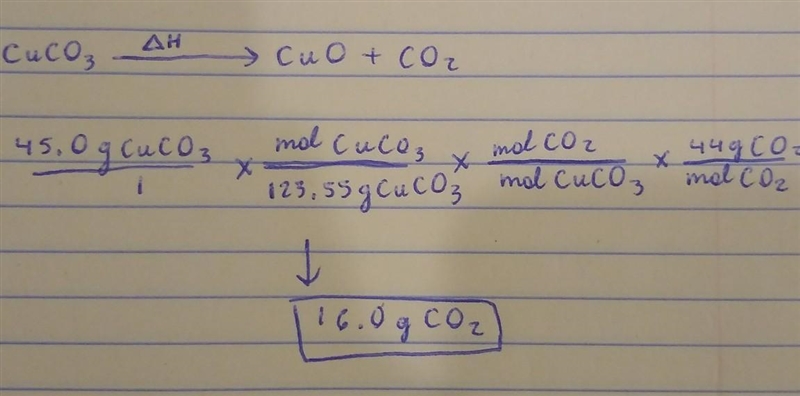 CuCO₃ ΔH → CuO + CO₂
45.0 g CuCO₃ / 1 × mol CuCO₃ / 123.55 g CuCO₃ × mol CO₂ / mol CuCO₃ × 44 g CO₂ / mol CO₂
↓
16.0 g CO₂